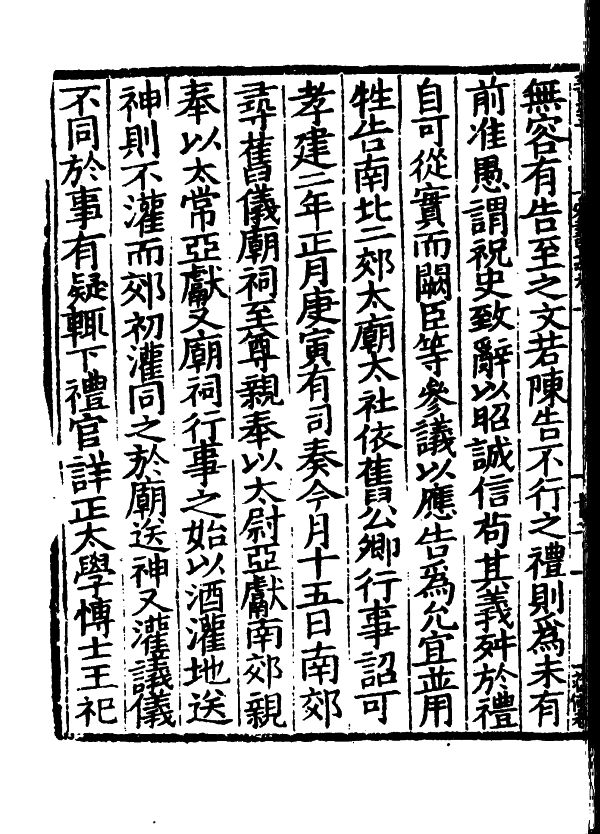 無容有告至之文若陳告不行之禮則爲未有
前准愚謂祝史致辭以昭誠信苟其義舛於禮
自可從實而闕臣等參議以應告爲允宜並用
牲告南北二郊太廟太社依舊公卿行事詔可
孝建二年正月庚寅有司奏今月十五日南郊
尋舊儀廟祠至尊親奉以太尉亞獻南郊親
奉以太常亞獻又廟祠行事之始以酒灌地送
神則不灌而郊初灌同之於廟送神又灌議儀
不同於事有疑輒下禮官詳正太學博士王祀